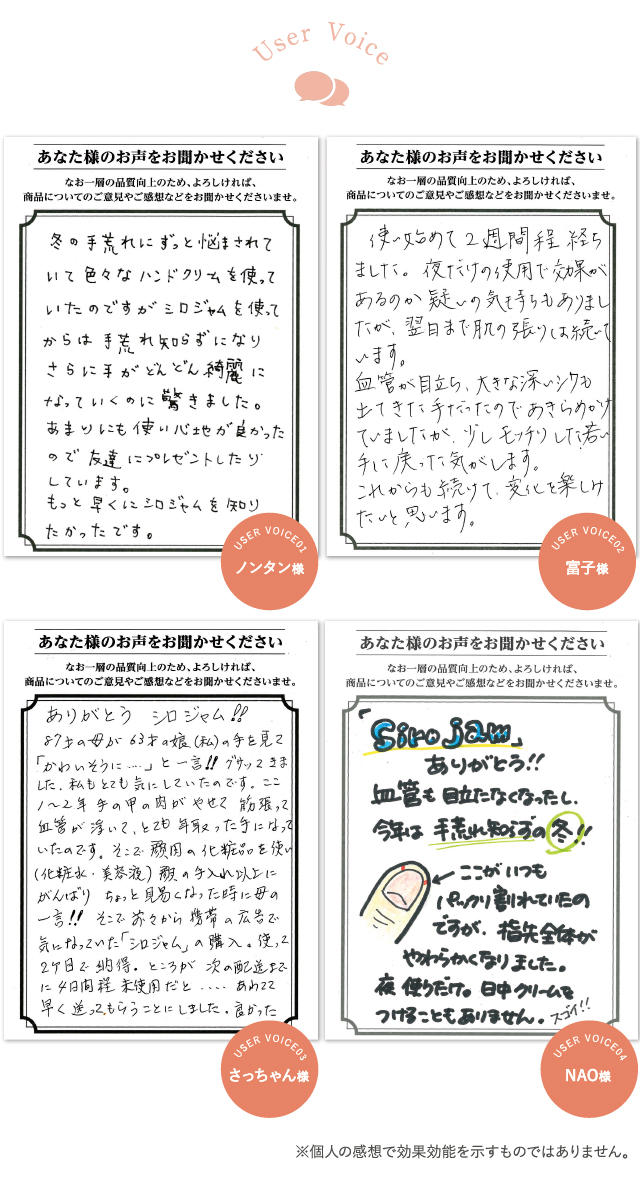 User Voice
あなた様のお声をお聞かせください
なお一層の品質向上のため、よろしければ、
商品についてのご意見やご感想などをお聞かせくださいませ。
冬の手荒れにずっと悩まされて
いて色々なハンドクリームを使って
いたのですがシロジャムを使って
からは手荒れ知らずになり
さらに手がどんどん綺麗に
なっていくのに驚きました。
あまりにも使い心地が良かった
ので友達にプレゼントしたり
しています。
もっと早くにシロジャムを知り
たかったです。
USER VOICE01
ノンタン様
あなた様のお声をお聞かせください
なお一層の品質向上のため、よろしければ、
商品についてのご意見やご感想などをお聞かせくださいませ。
使い始めて2週間程経ち
ました。夜だけの使用で効果が
あるのか疑いの気持ちもありまし
たが、翌日まで肌の張りは続いて
います。
血管が目立ち、大きな深いシワも
出てきた手だったのであきらめかけ
ていましたが、少しモッチリした若い
手に戻った気がします。
これからも続けて、変化を楽しみ
たいと思います。
USER VOICE02
富子様
あなた様のお声をお聞かせください
なお一層の品質向上のため、よろしければ、
商品についてのご意見やご感想などをお聞かせくださいませ。
ありがとう シロジャム!!
87才の母が63才の娘(私)の手を見て
「かわいそうに……」と一言!! グサッってきま
した。私もとても気にしていたのです。ここ
1〜2年 手の甲の肉がやせて 筋張って
血管が浮いて、とても年取った手になって
いたのです。そこで顔用の化粧品を使い
(化粧水・美容液) 顔の手入れ以上に
がんばり ちょっと見易くなった時に母の
一言!! そこで前々から携帯の広告で
気になっていた「シロジャム」の購入。使って
2ケ日で納得。ところが 次の配送まで
に4日間程 未使用だと…… あわてて
早く送ってもらうことにしました。良かった
USER VOICE03
さっちゃん様
あなた様のお声をお聞かせください
なお一層の品質向上のため、よろしければ、
商品についてのご意見やご感想などをお聞かせくださいませ。
「Siro jam」
ありがとう!!
血管も目立たなくなったし、
今年は手荒れ知らずの冬!!
ここがいつも
パックリ割れていたの
ですが、指先全体が
やわらかくなりました。
夜使うだけ。日中クリームを
つけることもありません。スゴイ!!
USER VOICE04
NAO様
※個人の感想で効果効能を示すものではありません。